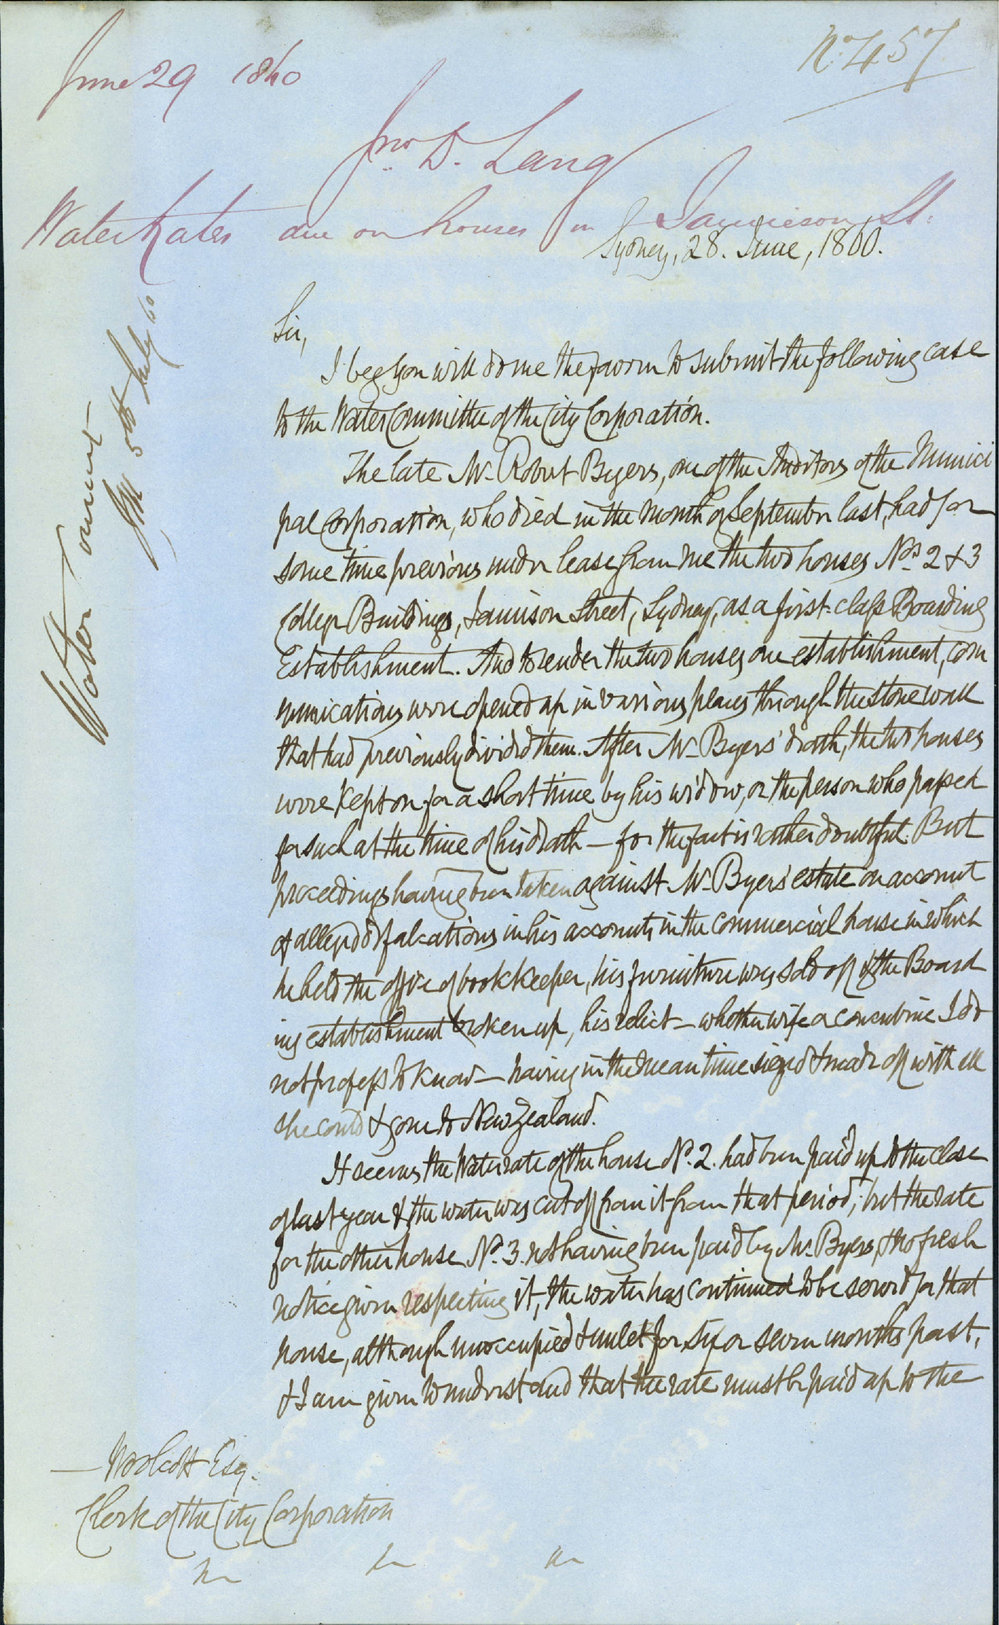 June 29 1860
No. 457
Jno. D. Lang
Water Rates due on houses in Jamieson St.
Sydney, 28. June, 1860.
Water Commt
5th July 60
Sir,
I beg you will do me the favour to submit the following case
to the Water Committee of the City Corporation.
The late Mr. Robert Byers, one of the Auditors of the Munici
pal Corporation, who died in the month of September last, had for
some time previous under lease from me the two houses Nos. 2 & 3
College Buildings, Jamison Street, Sydney, as a first-class Boarding
Establishment. And to render the two houses one establishment, com
munications were opened up in various places through the stone wall
that had previously divided them. After Mr. Byers' death, the two houses
were kept on for a short time by his widow, or the person who passed
for such at the time of his death — for the fact is rather doubtful. But
proceedings having been taken against Mr. Byers' estate on account
of alleged defalcations in his accounts in the commercial house in which
he held the office of bookkeeper, his furniture was sold off & the Board
ing establishment broken up, his relict — whether wife or concubine I do
not profess to know — having in the mean time seized & made off with all
she could & gone to New Zealand.
It seems the Water rate of the house No. 2. had been paid up to the close
of last year & the water was cut off from it from that period; but the rate
for the other house No. 3. not having been paid by Mr. Byers, & no fresh
notice given respecting it, the water has continued to be served for that
house, although unoccupied & unlet for six or seven months past,
& I am given to understand that the rate must be paid up to the
— Woolcott Esq.
Clerk of the City Corporation